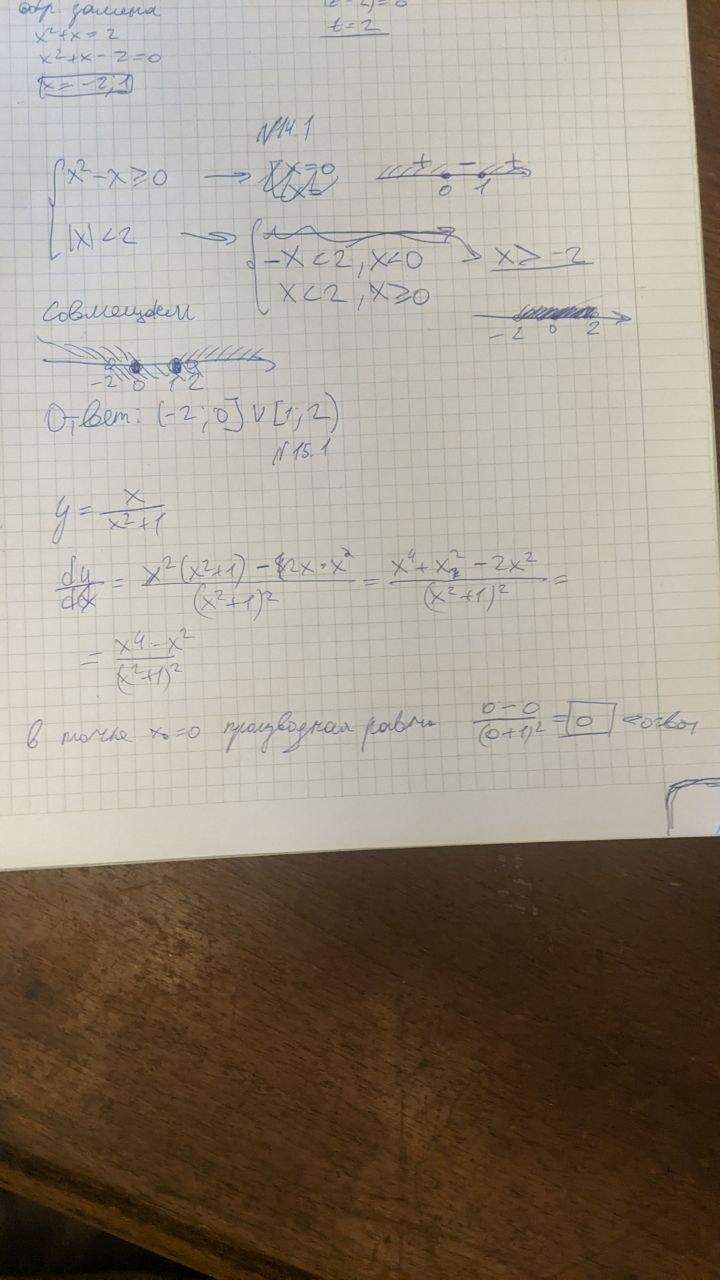 обр. замена
x²+x=2
x²+x-2=0
x=-2;1
t=2
N14.1
x²-x≥0 → + - +
0 1
|x|<2 → -x<2, x<0 x>-2
x<2, x≥0
-2 0 2
Совмещаем
-2 0 1 2
Ответ: (-2;0]∨[1;2)
N15.1
y = x/(x²+1)
dy/dx = (x²(x²+1) - 2x·x²)/(x²+1)² = (x⁴+x²-2x²)/(x²+1)² =
= (x⁴-x²)/(x²+1)²
в точке x₀=0 производная равна (0-0)/(0+1)² = 0